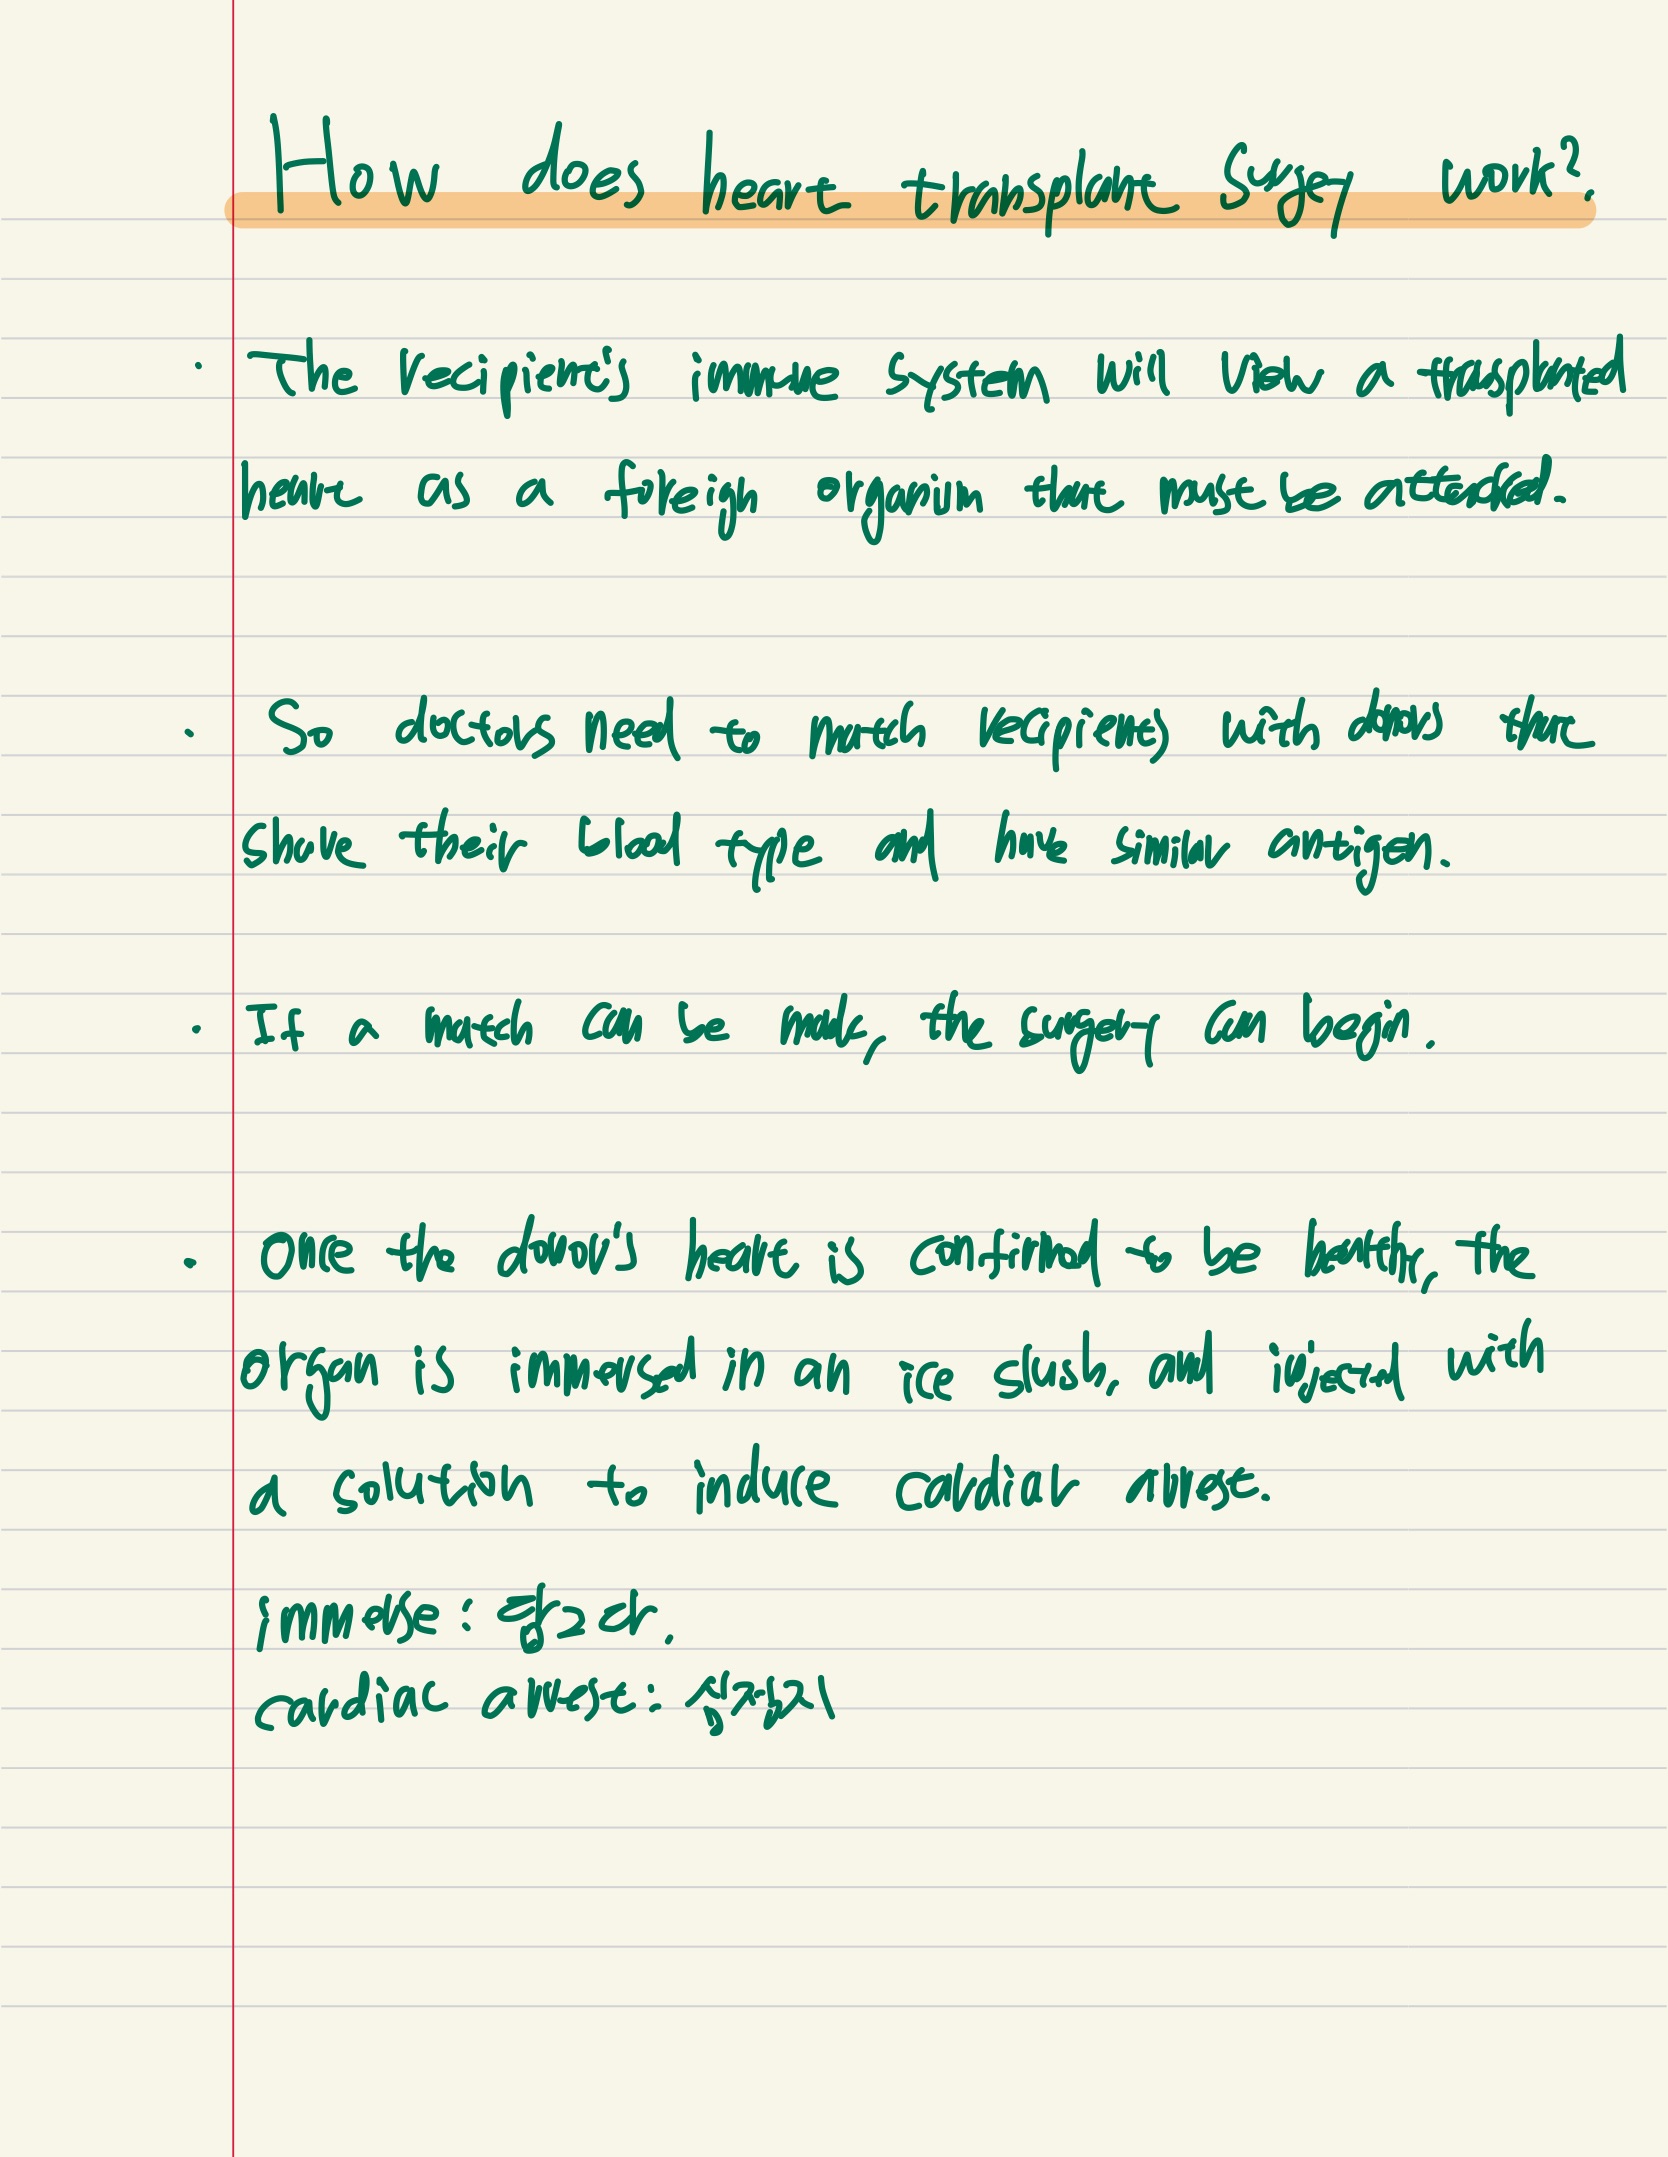 How does heart transplant surgey work?
· The recipient's immune system will view a transplanted
heart as a foreign organism that must be attacked.
· So doctors need to match recipients with donors that
share their blood type and have similar antigen.
· If a match can be made, the surgery can begin.
· Once the donor's heart is confirmed to be healthy, the
organ is immersed in an ice slush, and injected with
a solution to induce cardiac arrest.
immerse: 담그다.
cardiac arrest: 심정지